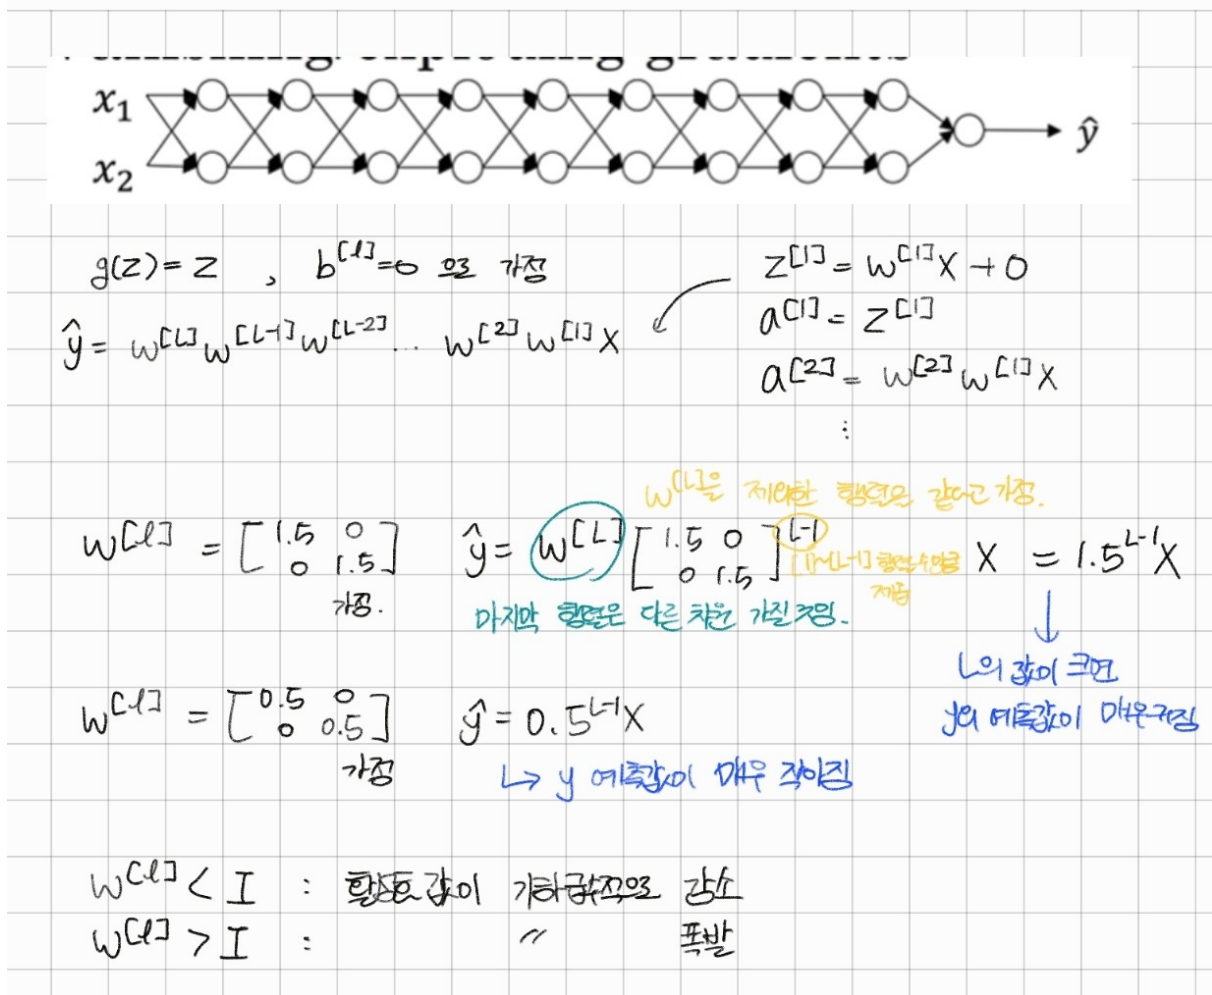 x₁
x₂
ŷ
g(z) = z , b^[l] = 0 으로 가정
ŷ = w^[L] w^[L-1] w^[L-2] ... w^[2] w^[1] x
z^[1] = w^[1] x + 0
a^[1] = z^[1]
a^[2] = w^[2] w^[1] x
⋮
w^[L]을 제외한 행렬은 같다고 가정.
w^[l] = [1.5 0
0 1.5]
가정.
ŷ = w^[L] [1.5 0
0 1.5]^L-1 x = 1.5^L-1 x
제곱
마지막 행렬은 다른 차원 가질 것임.
L의 값이 크면
y의 예측값이 매우 커짐
w^[l] = [0.5 0
0 0.5]
가정
ŷ = 0.5^L-1 x
↳ y 예측값이 매우 작아짐
w^[l] < I : 활성화 값이 기하급수적으로 감소
w^[l] > I : 〃 폭발